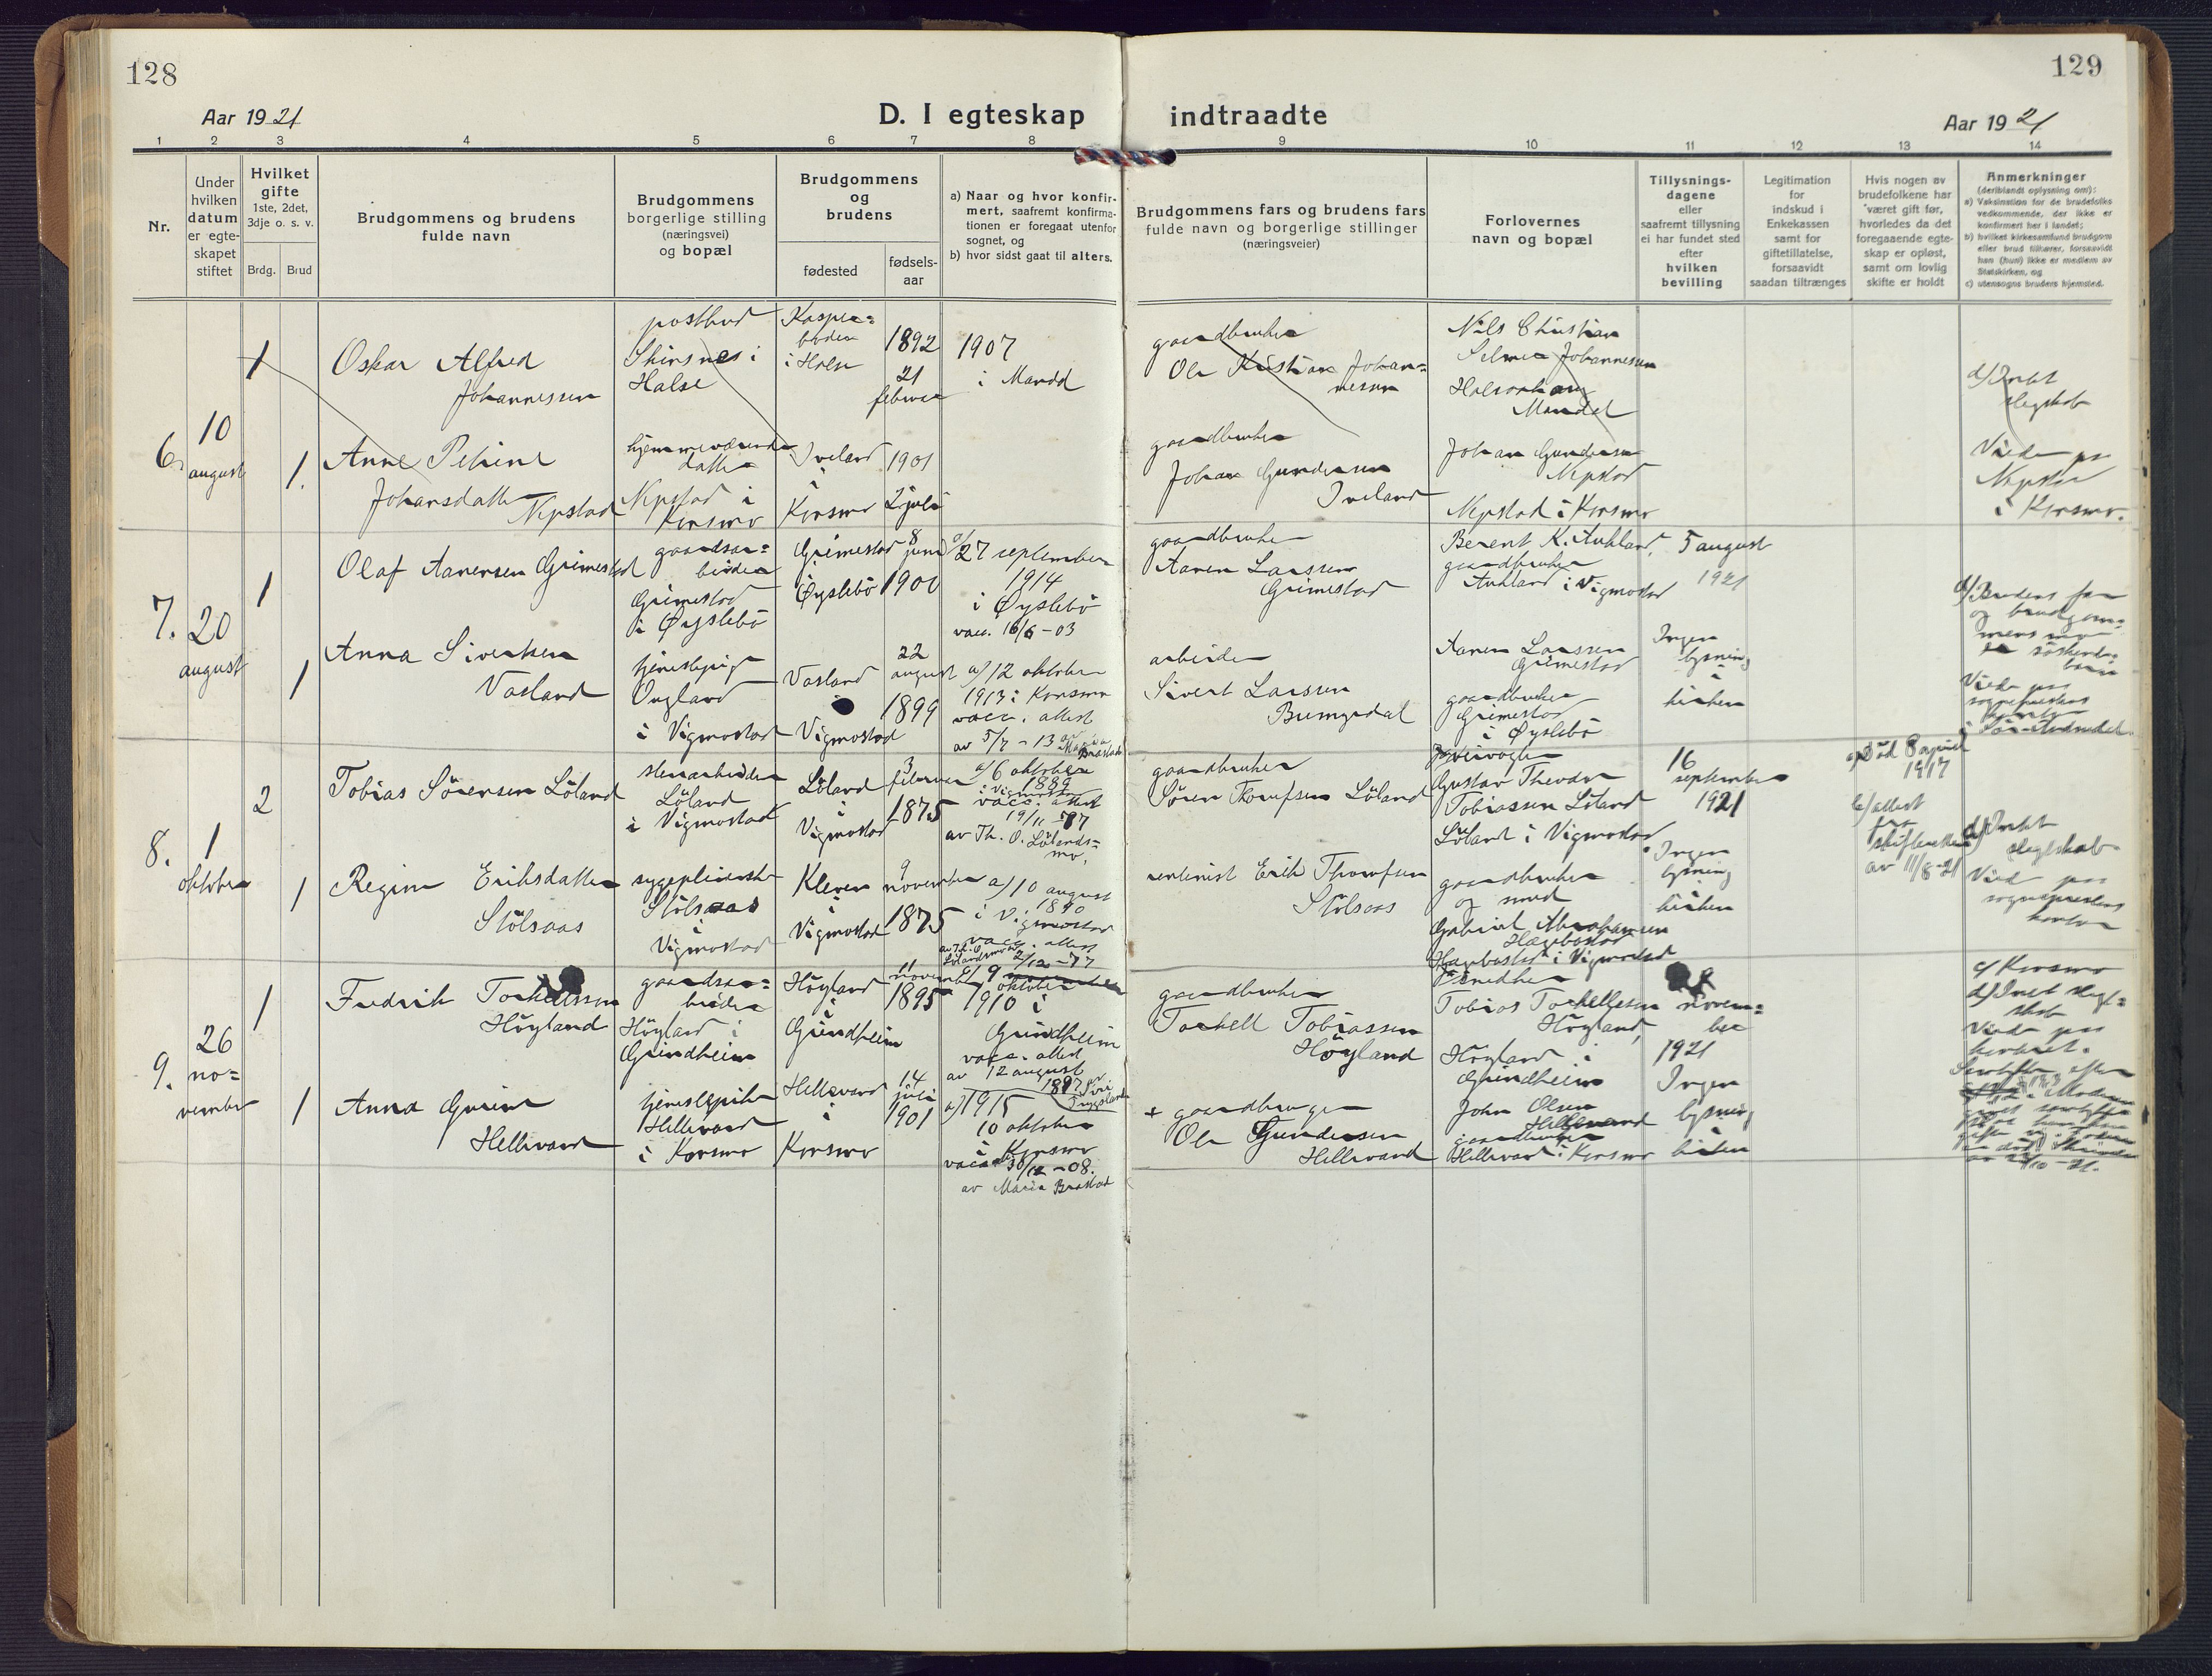 128
129
Aar 1921
D. I egteskap indtraadte
Aar 1921
1 2 3 4 5 6 7 8 9 10 11 12 13 14
Nr.
Under
hvilken
datum
er egte-
skapet
stiftet
Hvilket
gifte
1ste, 2det,
3dje o. s. v.
Brdg. Brud
Brudgommens og brudens
fulde navn
Brudgommens
borgerlige stilling
(næringsvei)
og bopæl
Brudgommens
og
brudens
fødested
fødsels-
aar
a) Naar og hvor konfir-
mert, saafremt konfirma-
tionen er foregaat utenfor
sognet, og
b) hvor sidst gaat til alters.
Brudgommens fars og brudens fars
fulde navn og borgerlige stillinger
(næringsveier)
Forlovernes
navn og bopæl
Tillysnings-
dagene
eller
saafremt tillysning
ei har fundet sted
efter
hvilken
bevilling
Legitimation
for
indskud i
Enkekassen
samt for
giftetillatelse,
forsaavidt
saadan tiltrænges
Hvis nogen av
brudefolkene har
været gift før,
hvorledes da det
foregaaende egte-
skap er opløst,
samt om lovlig
skifte er holdt
Anmerkninger
(deriblandt oplysning om):
a) Vaksination for de brudefolks
vedkommende, der ikke er
konfirmert her i landet;
b) hvilket kirkesamfund brudgom
eller brud tilhører, forsaavidt
han (hun) ikke er medlem av
Statskirken, og
c) utensogns brudens hjemsted.
6.
10
august
1
Oskar Alfred
Johannessen
postbud
Skinsnes i
Halse
i Halse
1892
21
februar
1907
i Mandal
gaardbruker
Ole Kristian Johan-
nessen
Nils Christian
Selmer Johannessen
Mandal
d) Intet
slegtskab
1.
Anne Petrine
Johansdatter
Nepstad
hjemmeværende
datter
Nepstad i
Konsmo
Iveland
i
Konsmo
1901
2 juli
gaardbruker
Johan Gundersen
Iveland
Johan Gundersen
Nepstad
Nepstad i Konsmo
Viede paa
Nepstad
i Konsmo.
7.
20
august
1
Olaf Aanensen Grimestad
gaardsar-
beider
Grimestad
i Øyslebö
Grimestad
i
Øyslebö
8
juni
1900
a/
27 september
1914
i Øyslebö
vacc. 16/6 - 03
gaardbruker
Aanen Larssen
Grimestad
Berent K. Aukland,
gaardbruker
Aukland i Vigmostad
5 august
1921
d) Brudens far
og brudgom-
mens mor
er söskende-
barn
1
Anna Sivertsen
Vasland
tjenestepige
Ougland
i Vigmostad
Vasland
i
Vigmostad
22
august
1899
a) 12 oktober
1913 i Konsmo
vacc. attest
av 5/7 - 13 av
Maria
Brastad
arbeider
Sivert Larssen
Aanen Larssen
Grimestad
gaardbruker
Grimestad
i Øyslebö
Ingen
lysning
i
kirken
Viede paa
sogneprestens
kontor
i Sør-Audnedal.
8.
1
oktober
2
Tobias Sörensen Löland
stenarbeider
Löland
i Vigmostad
Löland
i
Vigmostad
3
februar
1875
a/ 6 oktober
1889
i Vigmostad
vacc. attest
19/11 - 77
av Th. O. Lölands-
mo.
gaardbruker
Sören Thorufsen Löland
veivogter
Gustav Theodor
Tobiassen Löland
Löland i Vigmostad
16
september
1921
a) Död 8 april
1917
b) attest
fra
skifteretten
av 11/8-21
d) Intet
slegtskab
1
Regine Eriksdatter
Stölsaas
sygepleierske
Stölsaas
i
Vigmostad
Kleven
i
Vigmostad
9
november
1875
a/ 10 august
1890
i Vigmostad
vacc. attest
2/12 - 77
rentenist Erik Thorufsen
Stölsaas
gaardbruker
og smed
Gabriel Abrahamsen
Hægbostad
Hægbostad i Vigmostad
Ingen
lysning
i
kirken
Vied paa
sogneprestens
kontor
9.
26
no-
vember
1
Fredrik Torkellssen
Höyland
gaardsar-
beider
Höyland i
Grindheim
Höyland
i
Grindheim
11
november
1895
a/ 9
oktober
1910 i
Grindheim
vacc. attest
av 12 august
1897
gaardbruker
Torkell Tobiassen
Höyland
Tobias Torkellssen
Höyland,
Höyland i
Grindheim
novem-
ber
1921
c/ Konsmo
d) Intet slegt-
skab
Viede paa
kontoret.
1
Anna Gurine
Hellevard
tjenestepike
Hellevard
i Konsmo
Hellevard
i
Konsmo
14
juli
1901
a) 1915
10 oktober
i Konsmo
30/12 - 08.
av Maria Brastad
+ gaardbruger
Ole Gundersen
Hellevard
John Olsen
Hellevard
gaardbruker
Hellevard i Konsmo
Ingen
lysning
i
kirken